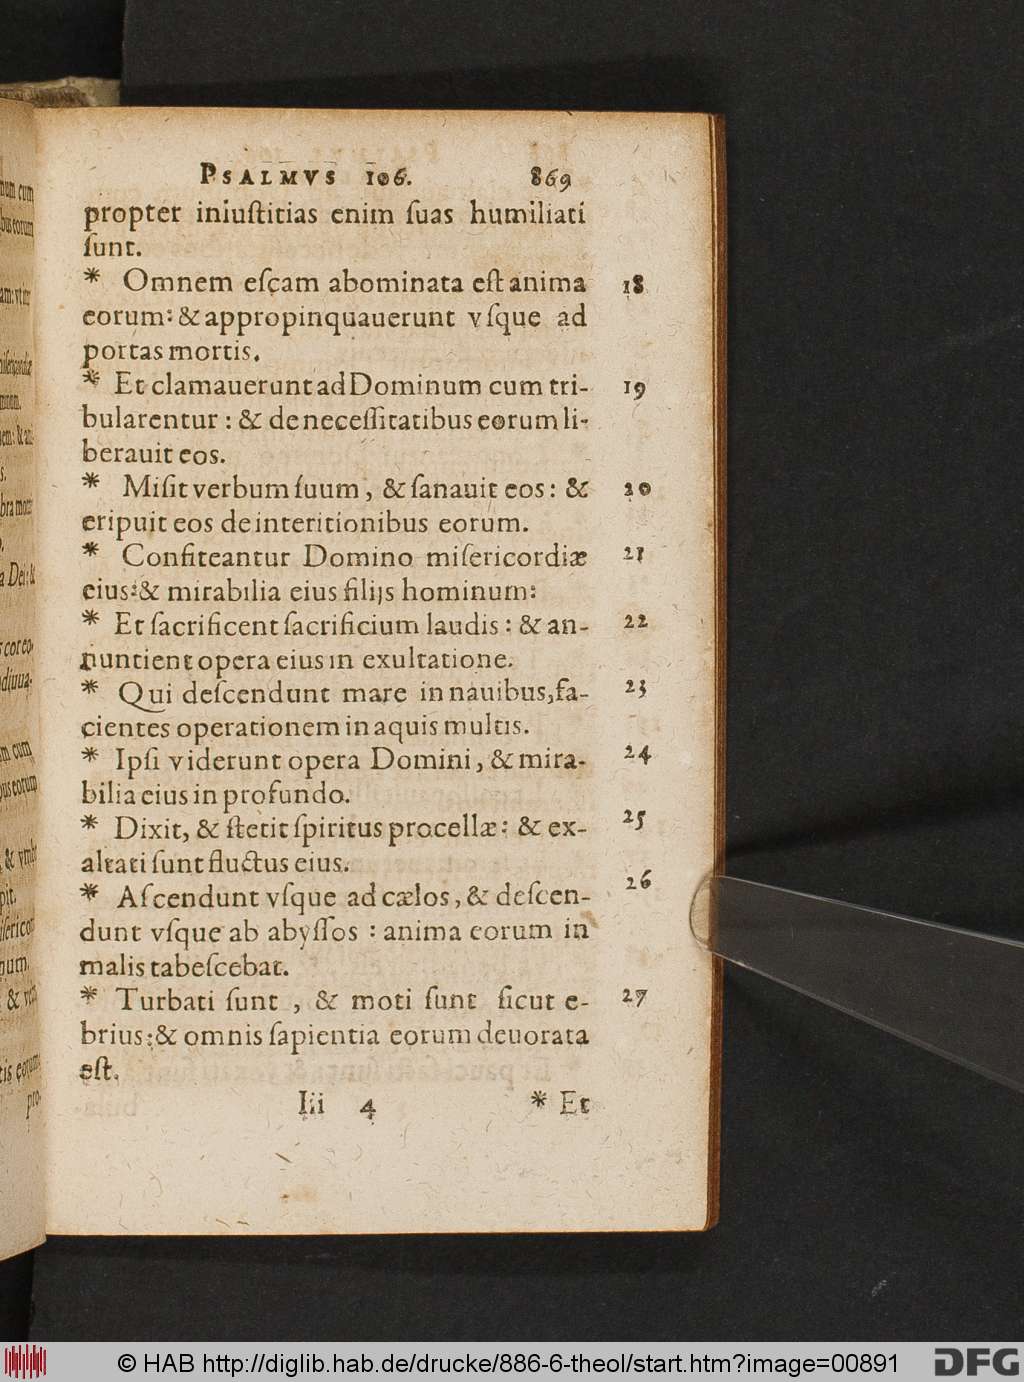 PSALMVS 106. 869
propter iniuſtitias enim ſuas humiliati
ſunt.
* Omnem eſcam abominata eſt anima 18
eorum: & appropinquauerunt vſque ad
portas mortis.
* Et clamauerunt ad Dominum cum tri- 19
bularentur : & de neceſſitatibus eorum li-
berauit eos.
* Miſit verbum ſuum, & ſanauit eos: & 20
eripuit eos de interitionibus eorum.
* Confiteantur Domino miſericordiæ 21
eius: & mirabilia eius filijs hominum:
* Et ſacrificent ſacrificium laudis : & an- 22
nuntient opera eius in exultatione.
* Qui deſcendunt mare in nauibus, fa- 23
cientes operationem in aquis multis.
* Ipſi viderunt opera Domini, & mira- 24
bilia eius in profundo.
* Dixit, & ſtetit ſpiritus procellæ: & ex- 25
altati ſunt fluctus eius.
* Aſcendunt vſque ad cælos, & deſcen- 26
dunt vſque ab abyſſos : anima eorum in
malis tabeſcebat.
* Turbati ſunt, & moti ſunt ſicut e- 27
brius: & omnis ſapientia eorum deuorata
eſt.
Iii 4 * Et
© HAB http://diglib.hab.de/drucke/886-6-theol/start.htm?image=00891 DFG